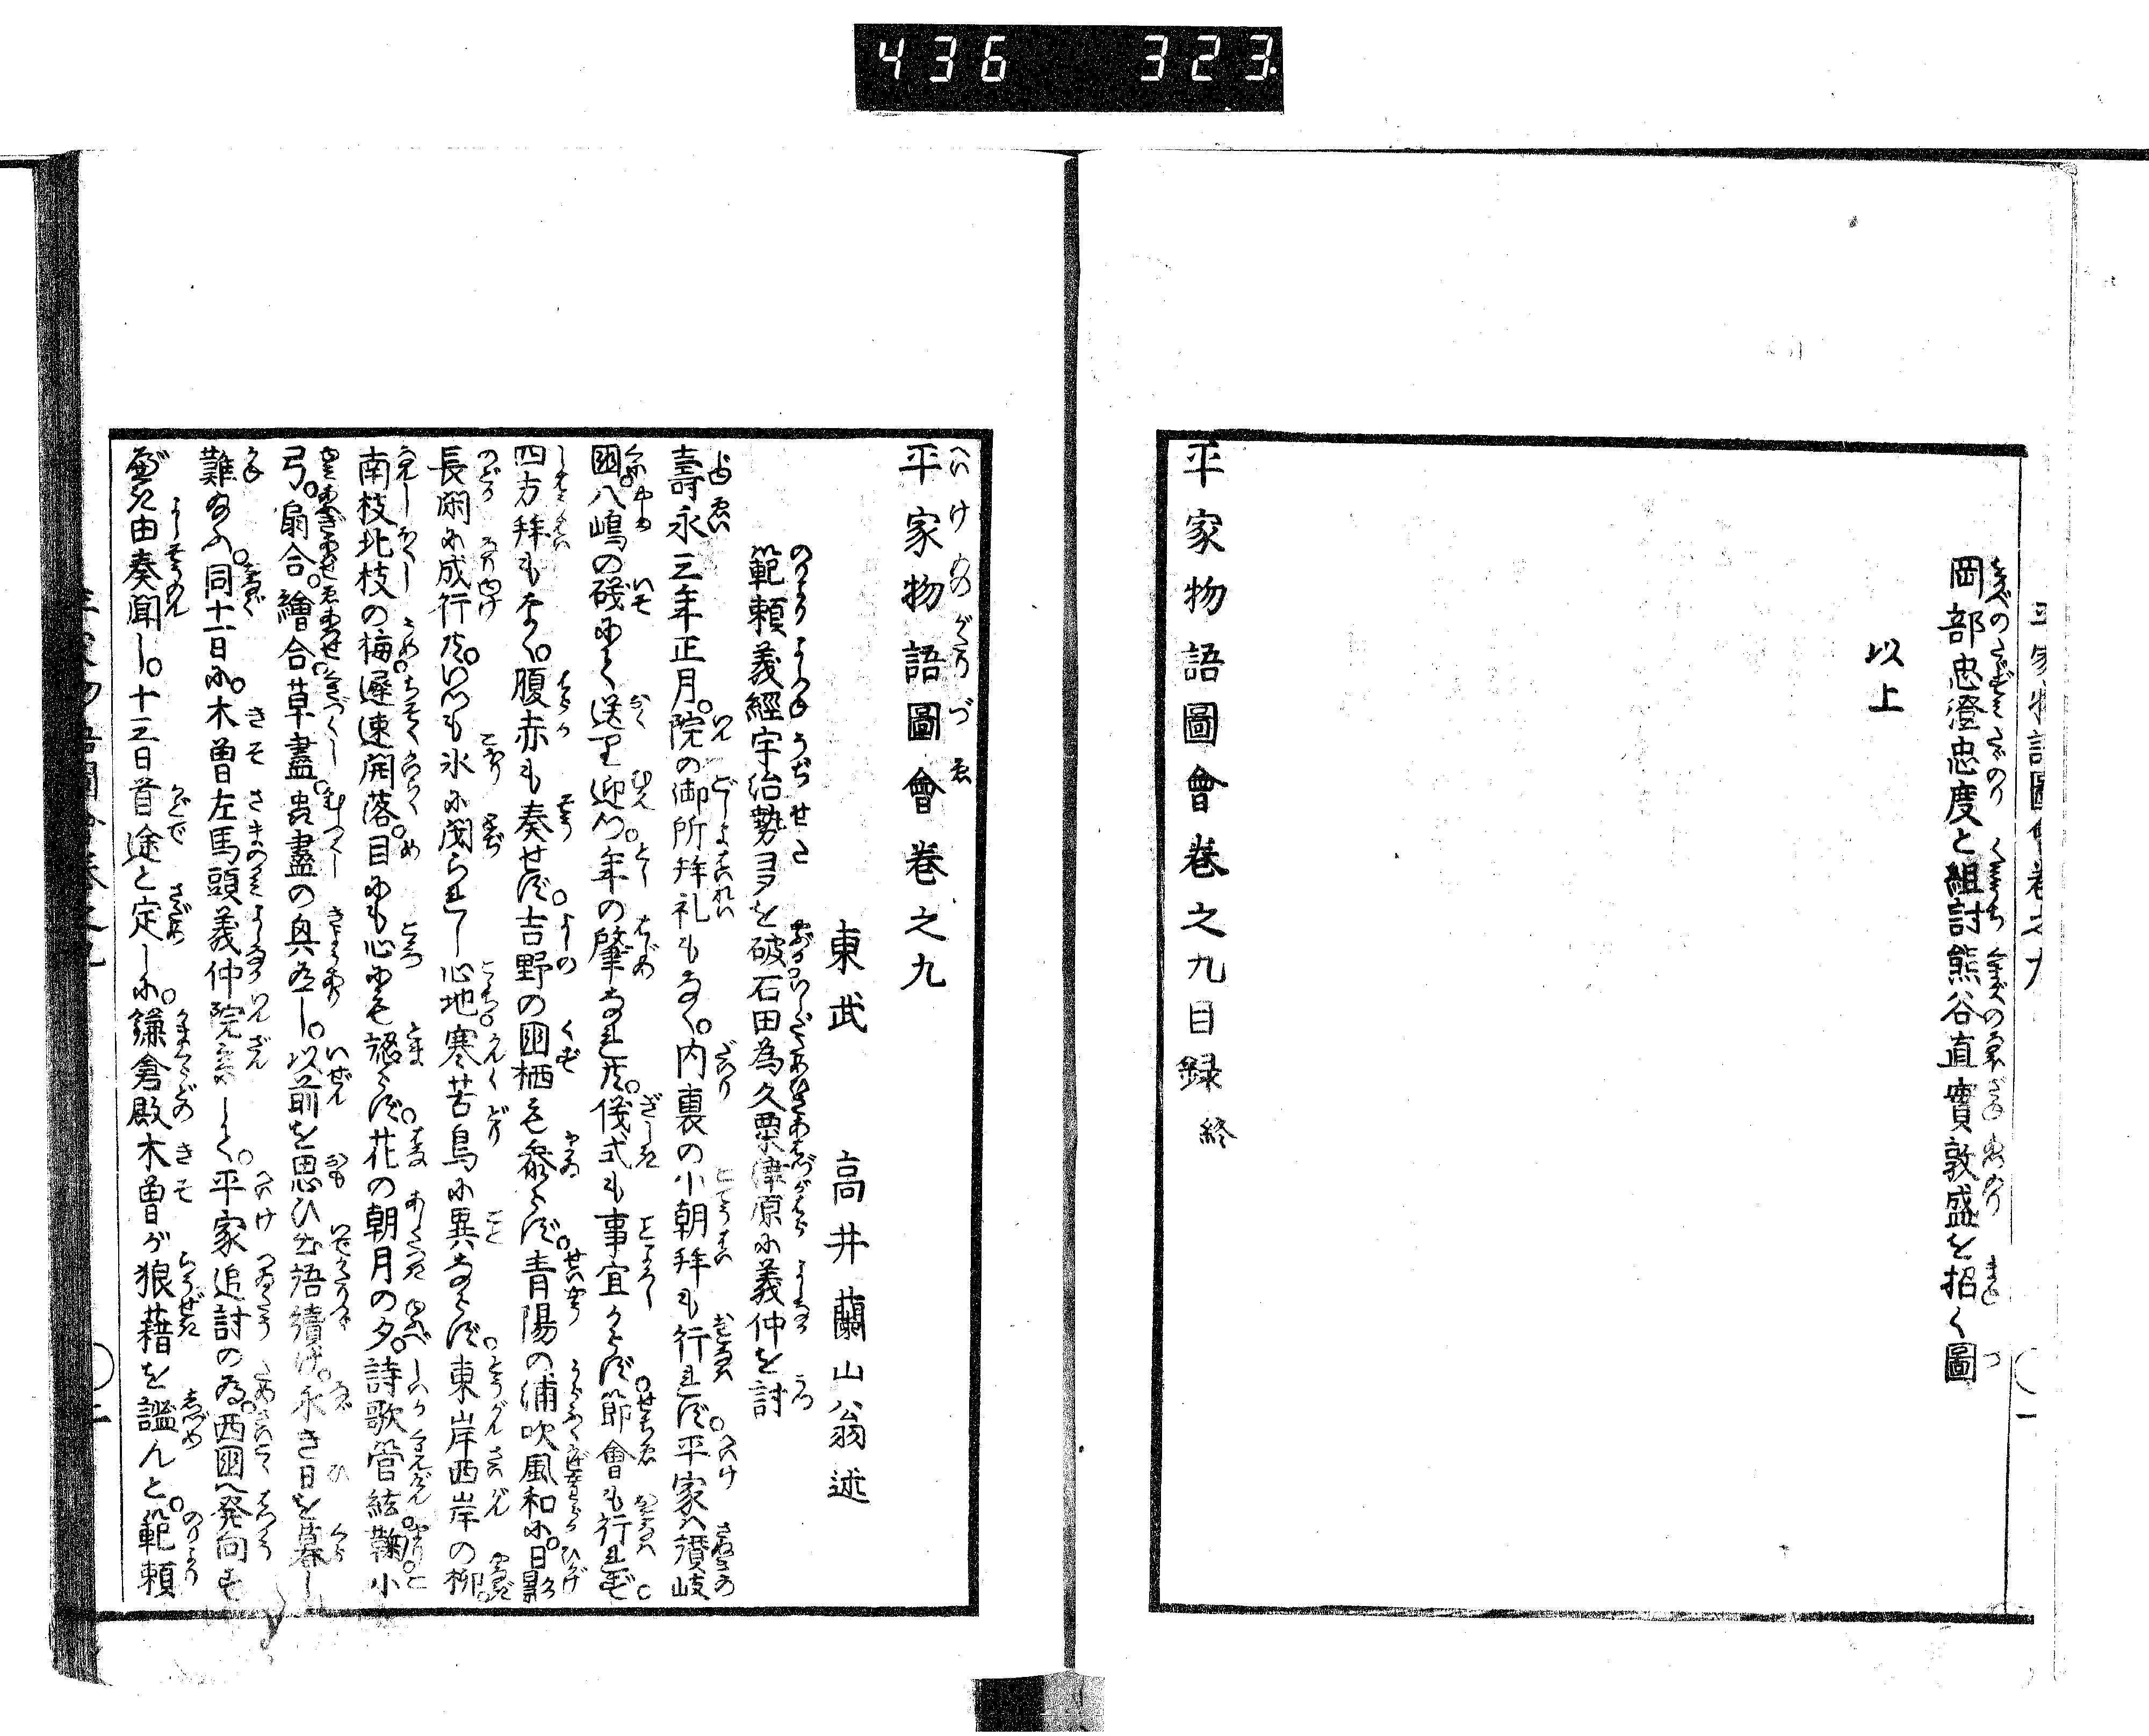 436 323.
岡部忠澄忠度と組討熊谷直實敦盛を招く圖
以上
平家物語圖會巻之九目録 終
平家物語圖會巻之九
東武 高井蘭山翁述
範頼義經宇治勢多を破石田為久粟津原に義仲を討
壽永三年正月。院の御所拜礼もなく。内裏の小朝拜も行れず。平家ハ讃岐
國八嶋の磯にて送り迎へつ。年の肇なれど。儀式も事宜からず。節會も行れず。
四方拜もなく。腹赤も奏せず。吉野の國栖も參らず。青陽の浦吹風和に。日影
長閑に成行ど。いつも氷に閉られし心地。寒苦鳥に異ならず。東岸西岸の柳。
南枝北枝の梅。遲速開落。目にも心にも認らず。花の朝月の夕。詩歌管絃。鞠。小
弓。扇合。繪合。草盡。虫盡の興なし。以前を思ひ出語續け。永き日を暮し
難給ふ。同十一日に。木曽左馬頭義仲院參して。平家追討の為。西國へ発向す
べき由奏聞し。十三日首途と定しに。鎌倉殿木曽が狼藉を謐んと。範頼